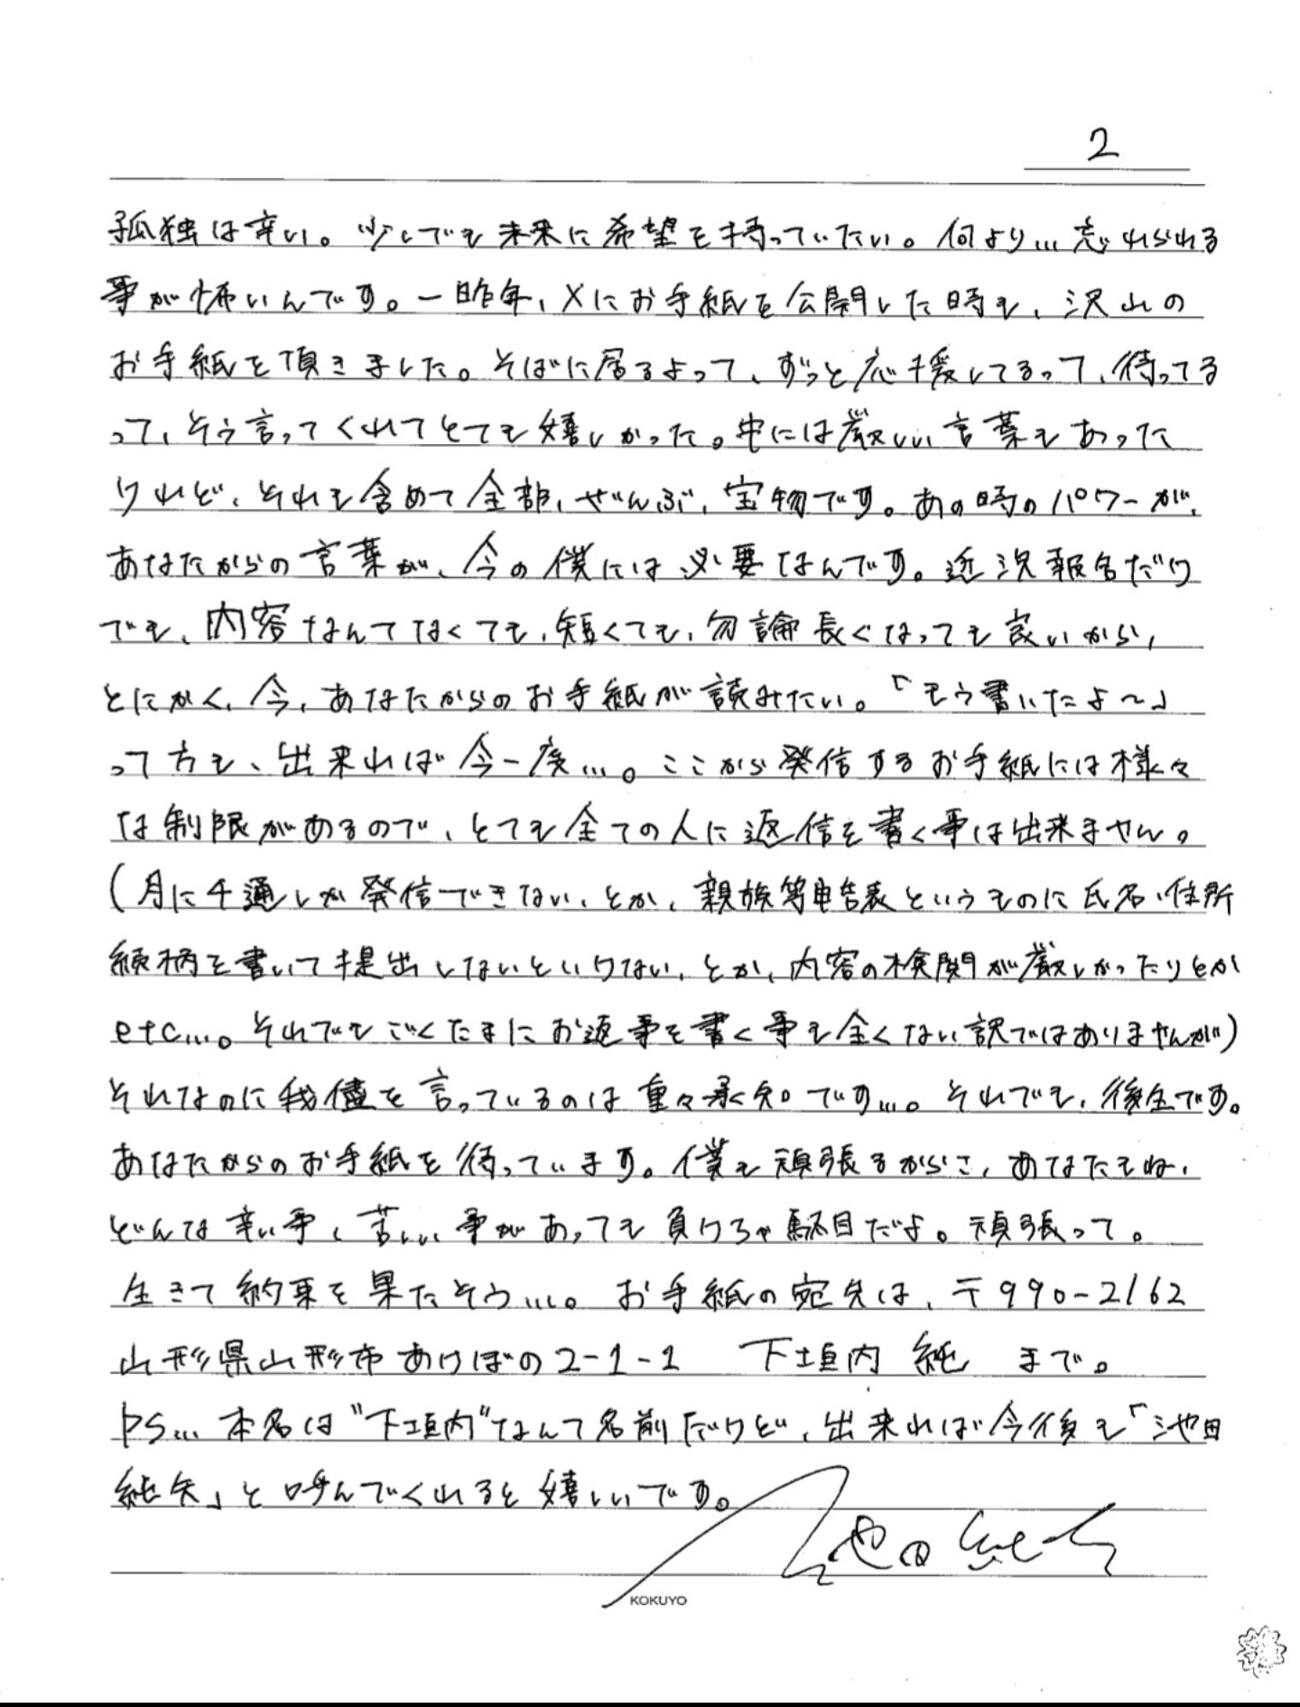 2
孤独は辛い。少しでも未来に希望を持っていたい。何より…忘れられる
事が怖いんです。一昨年、Xにお手紙を公開した時も、沢山の
お手紙を頂きました。そばに居るよって、ずっと応援してるって、待ってる
って、そう言ってくれてとても嬉しかった。中には厳しい言葉もあった
けれど、それも含めて全部、ぜんぶ、宝物です。あの時のパワーが、
あなたからの言葉が、今の僕には必要なんです。近況報告だけ
でも、内容なんてなくても、短くても、勿論長くなっても良いから、
とにかく、今、あなたからのお手紙が読みたい。「もう書いたよ〜」
って方も、出来れば今一度…。ここから発信するお手紙には様々
な制限があるので、とても全ての人に返信を書く事は出来ません。
(月に4通しか発信できない、とか、親族等申告表というものに氏名・住所
続柄を書いて提出しないといけない、とか、内容の検閲が厳しかったりとか
etc…。それでもごくたまにお返事を書く事も全くない訳ではありませんが)
それなのに我儘を言っているのは重々承知です…。それでも、後生です。
あなたからのお手紙を待っています。僕も頑張るからさ、あなたもね、
どんな辛い事、苦しい事があっても負けちゃ駄目だよ。頑張って。
生きて約束を果たそう…。お手紙の宛先は、〒990-2162
山形県山形市あけぼの2-1-1 下垣内 純 まで。
PS…本名は"下垣内"なんて名前だけど、出来れば今後も「池田
純矢」と呼んでくれると嬉しいです。
池田純矢
KOKUYO